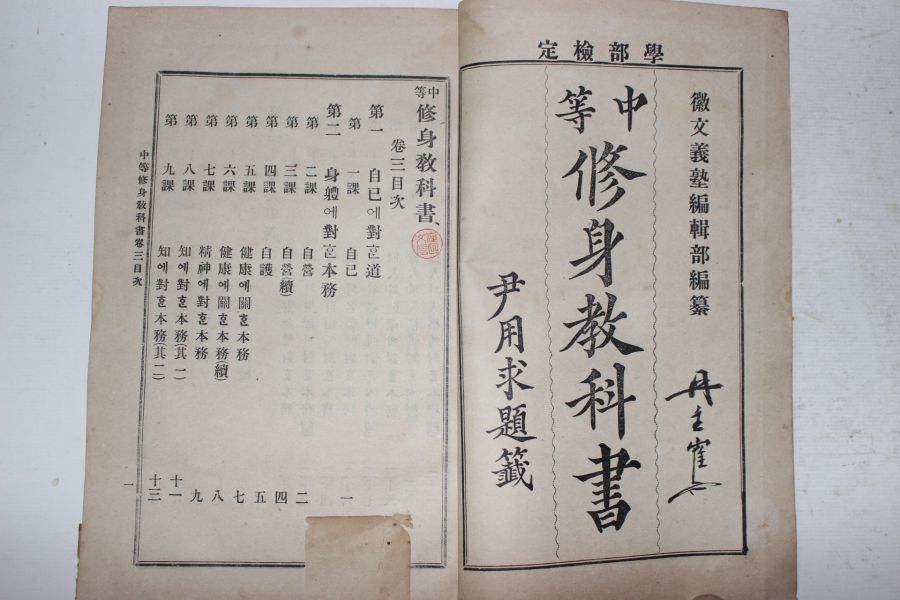 學部檢定
徽文義塾編輯部編纂
中等
修身教科書
尹用求題籤
中等修身敎科書
卷三目次
第一 自己에對ᄒᆞᆫ道
第一課 自己 一
第二 身軆에對ᄒᆞᆫ本務
第二課 自營 二
第三課 自營(續) 四
第四課 自護 五
第五課 健康에關ᄒᆞᆫ本務 七
第六課 健康에關ᄒᆞᆫ本務(續) 八
第七課 精神에對ᄒᆞᆫ本務 九
第八課 知에對ᄒᆞᆫ本務(其一) 十一
第九課 知에對ᄒᆞᆫ本務(其二) 十三
中等修身敎科書卷三目次
一